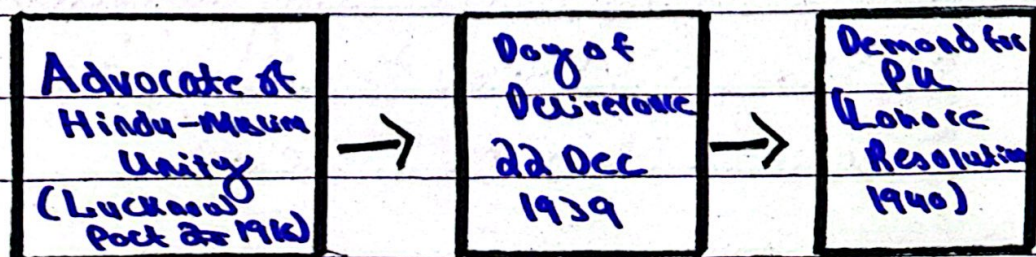 Advocate of
Hindu-Muslim
Unity
(Lucknow
Pact 1916)
Day of
Deliverance
22 Dec
1939
Demand for
PK
(Lahore
Resolution
1940)